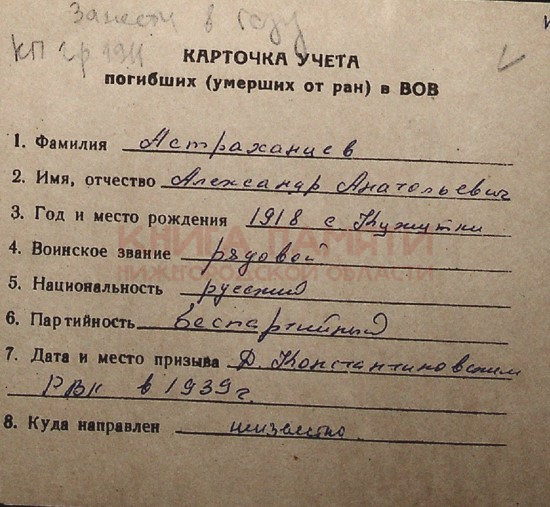 Занести в году
КП гр 1911
КАРТОЧКА УЧЕТА
погибших (умерших от ран) в ВОВ
1. Фамилия Астраханцев
2. Имя, отчество Александр Анатольевич
3. Год и место рождения 1918 с Кужутки
КНИГА ПАМЯТИ
4. Воинское звание рядовой
НИЖЕГОРОДСКОЙ ОБЛАСТИ
5. Национальность русский
6. Партийность беспартийный
7. Дата и место призыва Д. Константиновским
РВК в 1939 г.
8. Куда направлен неизвестно